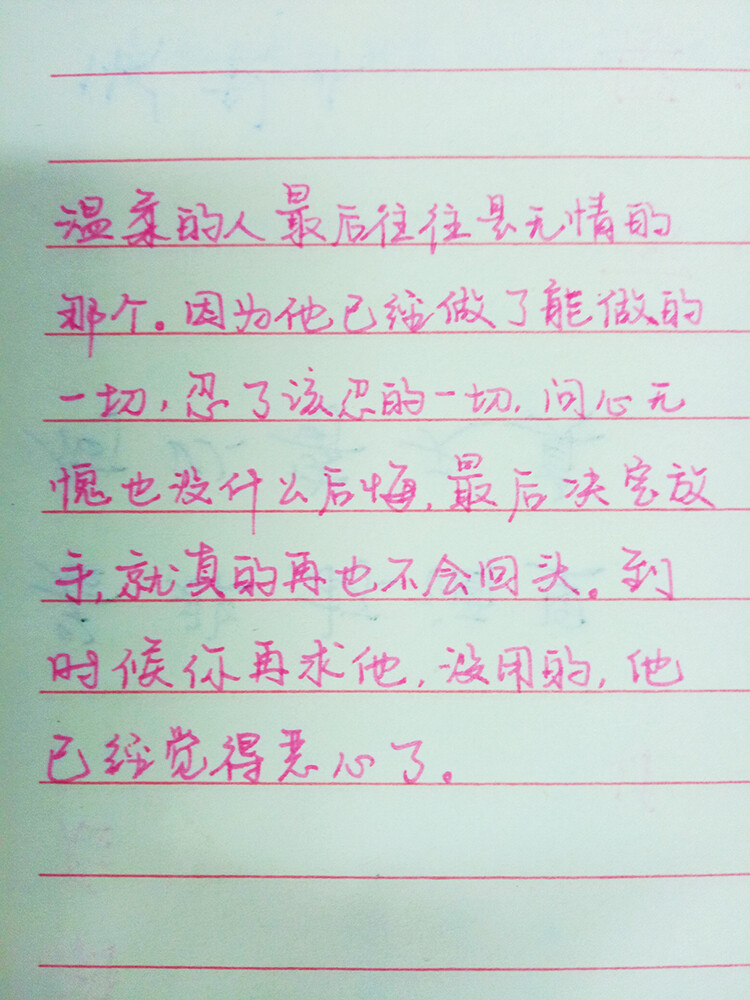 温柔的人最后往往是无情的
那个。因为他已经做了能做的
一切,忍了该忍的一切,问心无
愧也没什么后悔,最后决定放
手,就真的再也不会回头。到
时候你再求他,没用的,他
已经觉得恶心了。